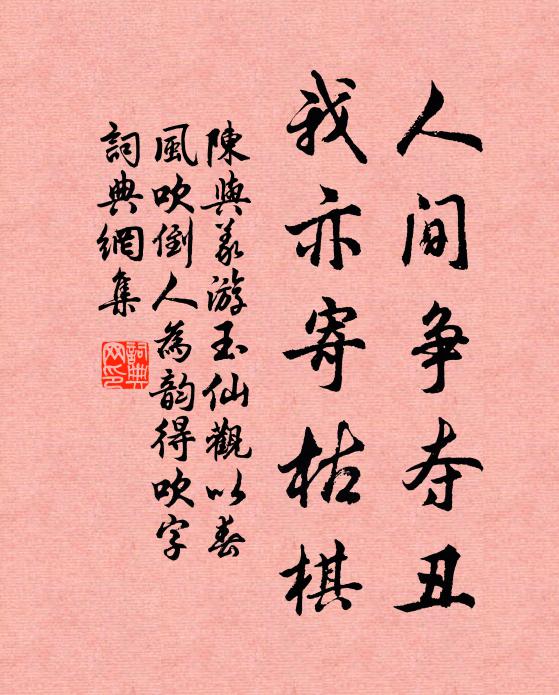 人间争夺丑
我亦寄枯棋
陳與義游玉仙觀以春
風吹倒人為韵得吹字
詞典網集
詞典网印